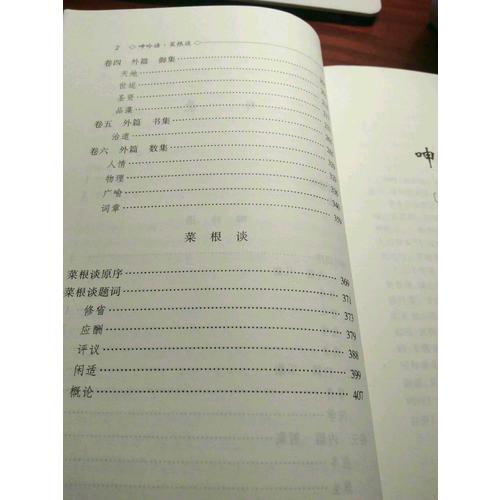 2 ◇呻吟语·菜根谈◇
卷四 外篇 御集
天地
世运
圣贤
品藻
卷五 外篇 书集
治道
卷六 外篇 数集
人情
物理
广喻
词章
菜根谈
菜根谈原序 369
菜根谈题词 371
修省 373
应酬 379
评议 388
闲适 399
概论 407
呻